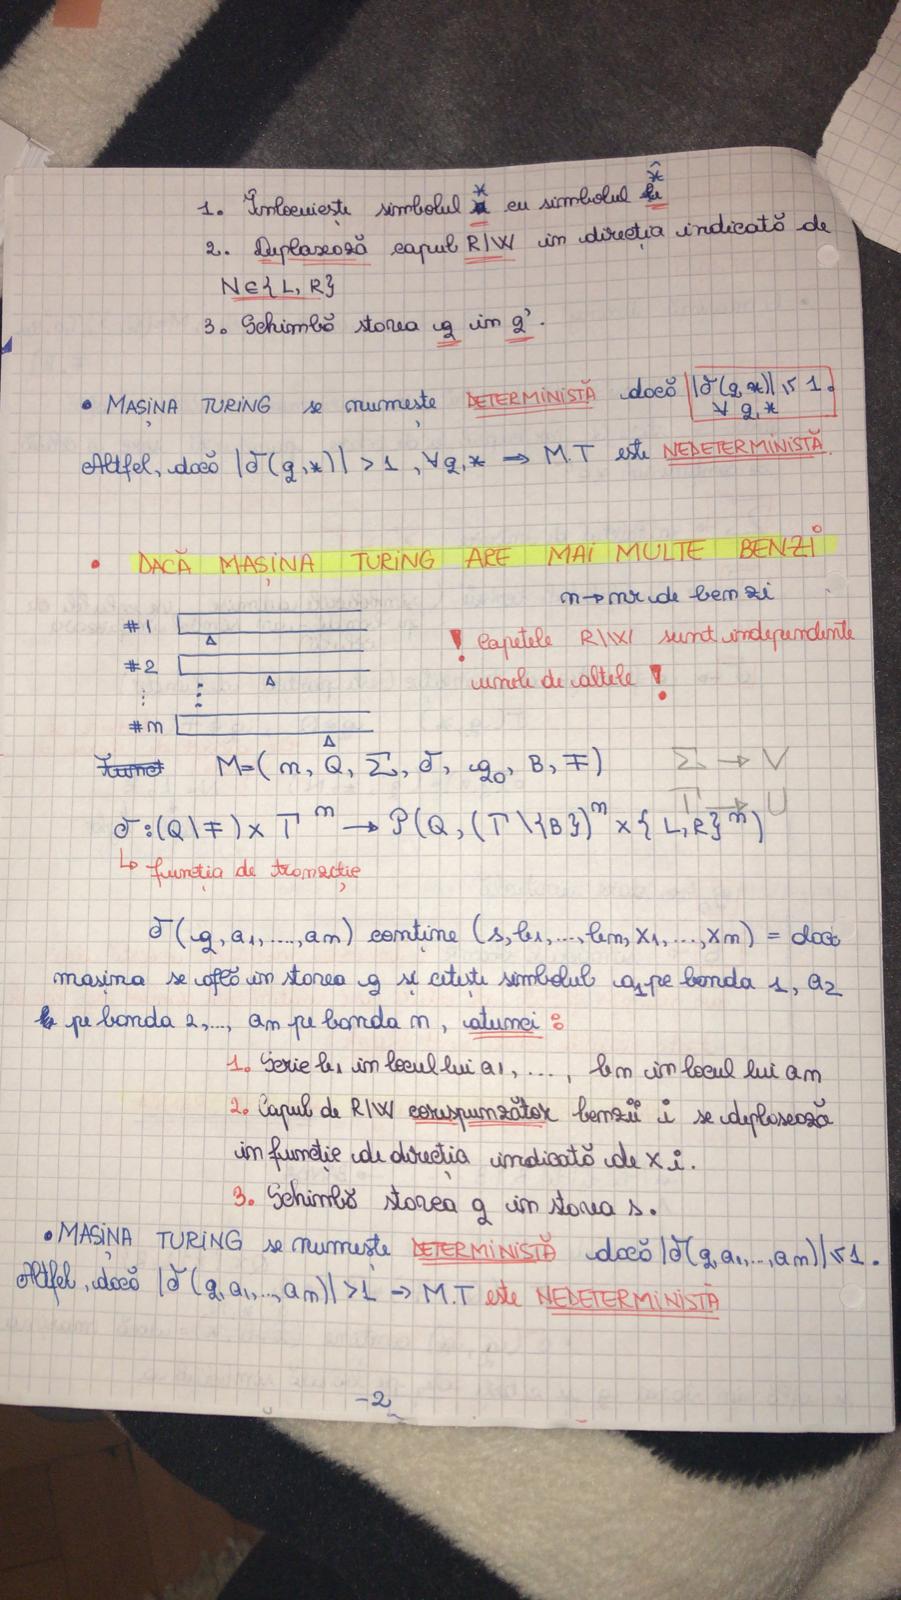 1. Înlocuiește simbolul * cu simbolul *̂
2. Deplasează capul R/W în direcția indicată de
N∈{L, R}
3. Schimbă starea q în q'.
• MAȘINA TURING se numește DETERMINISTĂ dacă |δ(q,*)| ≤ 1.
∀ q,*
Altfel, dacă |δ(q,*)| > 1, ∀q,* → M.T este NEDETERMINISTĂ.
• DACĂ MAȘINA TURING ARE MAI MULTE BENZI
n→nr de benzi
#1
! Capetele R/W sunt independente
#2
unele de altele !
⋮ ⋮
#n
M=(n, Q, Σ, δ, q₀, B, F) Σ → V
Γ → U
δ:(Q\F)×Γⁿ → P(Q,(Γ\{B})ⁿ×{L,R}ⁿ)
↳ funcția de tranzacție
δ(q,a₁,...,an) conține (s,b₁,...,bn,x₁,...,xn) = dacă
mașina se află în starea q și citește simbolul a₁ pe banda 1, a₂
pe banda 2,..., an pe banda n, atunci:
1. Scrie b₁ în locul lui a₁, ..., bn în locul lui an
2. Capul de R/W corespunzător benzii i se deplasează
în funcție de direcția indicată de xi.
3. Schimbă starea q în starea s.
• MAȘINA TURING se numește DETERMINISTĂ dacă |δ(q,a₁,...,an)| ≤ 1.
Altfel, dacă |δ(q,a₁,...,an)| >1 → M.T este NEDETERMINISTĂ
-2